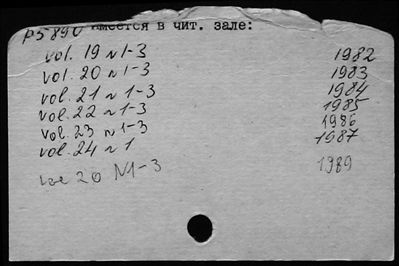 P5890 имеется в чит. зале:
vol. 19 N 1-3 1982
vol. 20 N 1-3 1983
vol. 21 N 1-3 1984
vol. 22 N 1-3 1985
vol. 23 N 1-3 1986
vol. 24 N 1 1987
vol 26 N1-3 1989